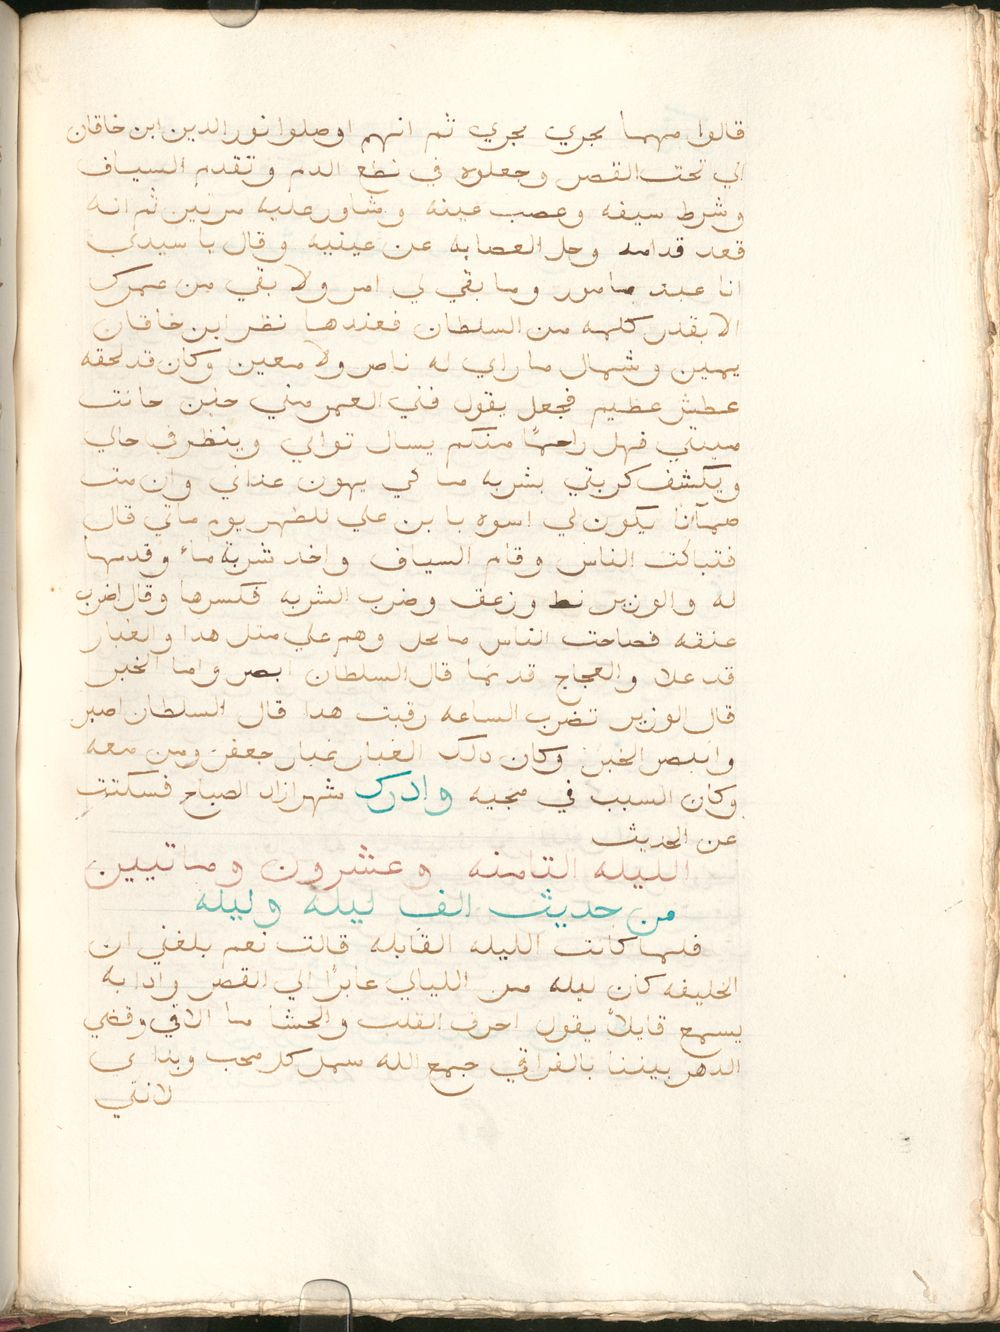 قالوا مهما يجري يجري ثم انهم اوصلوا نور الدين ابن خاقان
الي تحت القصر وجعلوه في نطع الدم وتقدم السياف
وشرط سيفه وعصب عينه وشاور عليه مرتين ثم انه
قعد قدامه وحل العصابه عن عينيه وقال يا سيدي
انا عبد مامور وما بقي لي امر ولا بقي من عمرك
الا بقدر كلمه من السلطان فعندها نظر ابن خاقان
يمين وشمال ما راي له ناصر ولا معين وكان قد لحقه
عطش عظيم فجعل يقول فني العمر مني حين حانت
ميتتي فهل راحمًا منكم يسال توالي وينظر في حالي
ويكشف كربتي بشربه ما كي يهون عذابي وان مت
ضمآنا يكون لي اسوه با بن علي للطهر يوم ماتي قال
فتباكت الناس وقام السياف واخد شربة ماء وقدمها
له والوزير نط وزعق وضرب الشربه فكسرها وقال اضرب
عنقه فصاحت الناس ما يحل وهم علي متل هدا والغبار
قد علا والعجاج قد نما قال السلطان ابصر واما الخبر
قال الوزير تضرب الساعه رقبت هدا قال السلطان اصبر
وانبصر الخبر وكان دلك الغبار غبار جعفر ومن معه
وكان السبب في مجيه وادرك شهرازاد الصباح فسكتت
عن الحديث
الليله التامنه وعشرون وماتيين
من حديث الف ليلة وليله
فلما كانت الليله القابله قالت نعم بلغني ان
الخليفه كان ليله من الليالي عابرًا الي القصر وادا به
يسمع قايلاً يقول احرق القلب والحشا ما الاقي وقضي
الدهر بيننا بالفراق جمع الله سمل كل محب وبدا ي
لانني